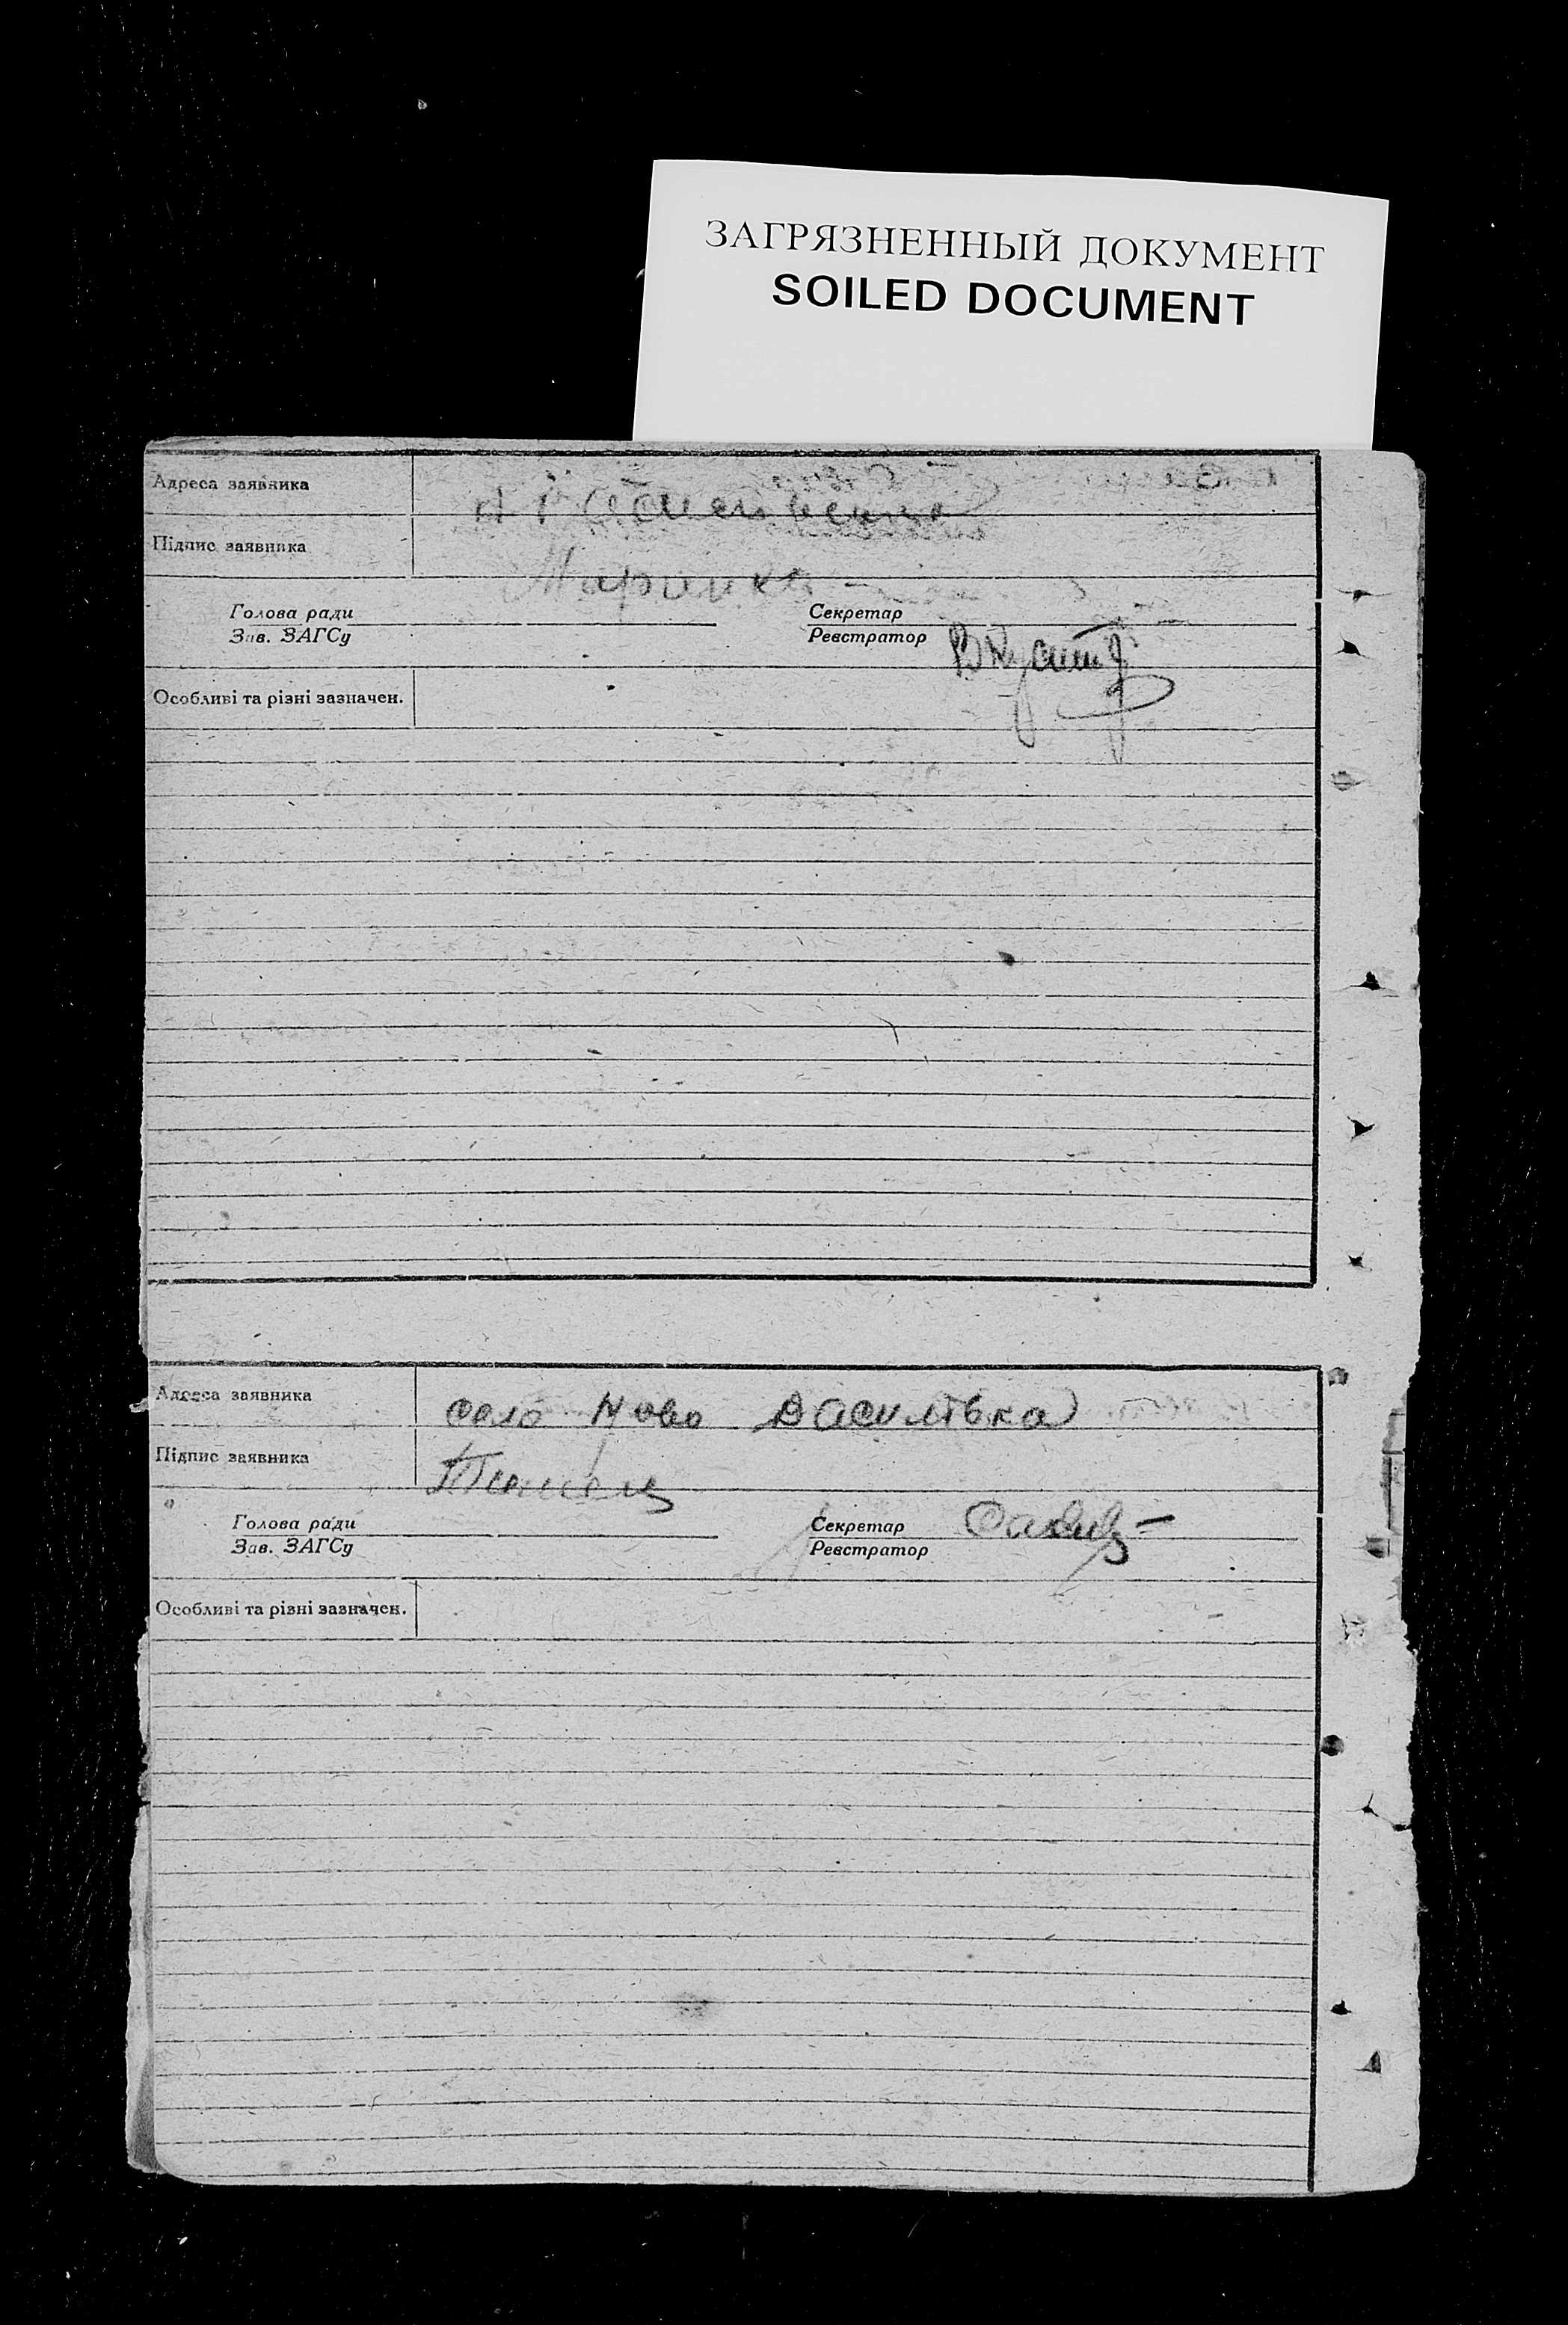 ЗАГРЯЗНЕННЫЙ ДОКУМЕНТ
SOILED DOCUMENT
Адреса заявника
Підпис заявника
Голова ради
Зав. ЗАГСу
Секретар
Реєстратор
Особливі та різні зазначен.
Адреса заявника село Ново Василівка
Підпис заявника
Голова ради
Зав. ЗАГСу
Секретар
Реєстратор
Особливі та різні зазначен.